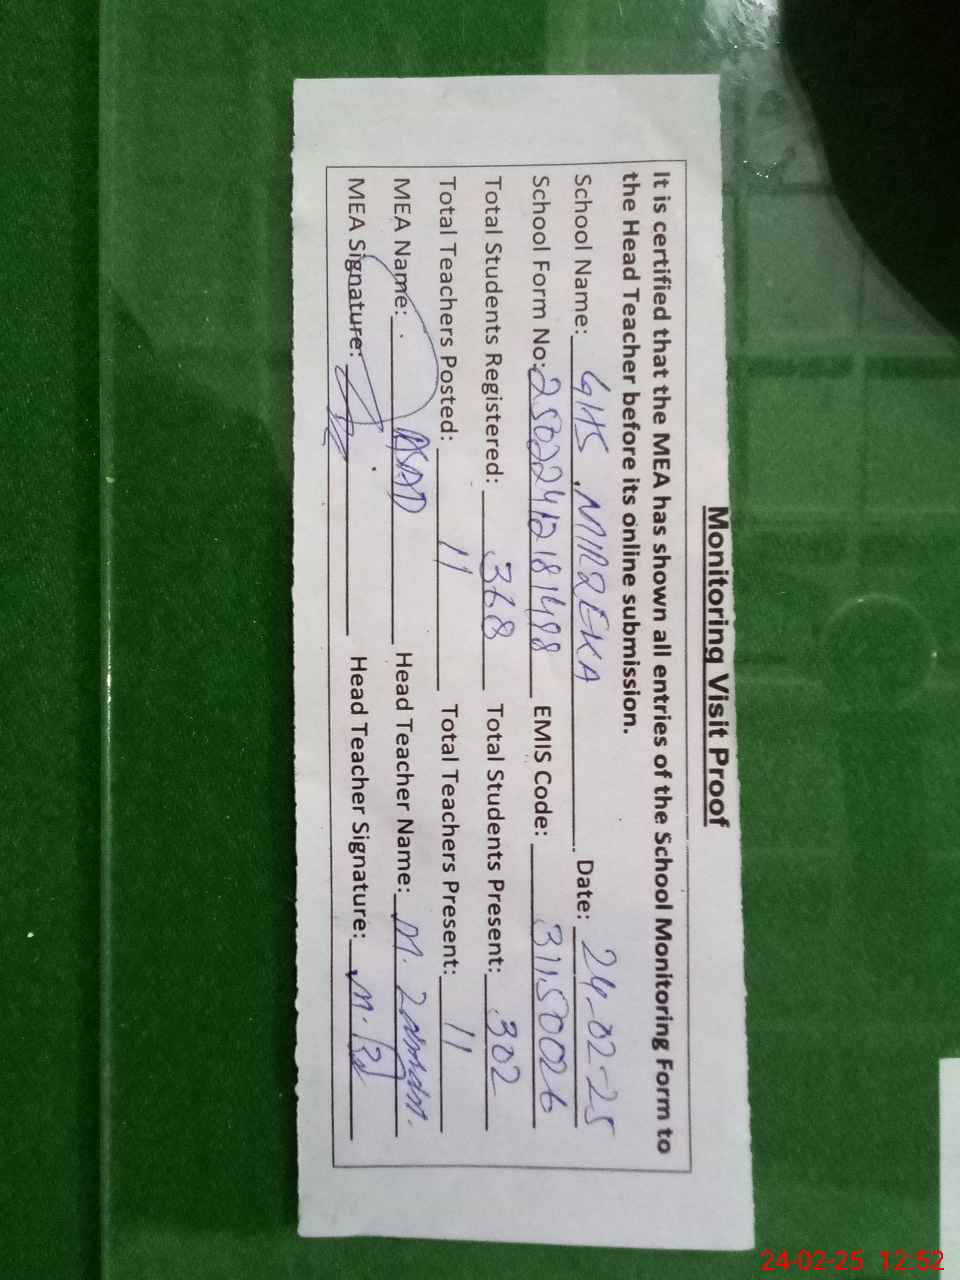 Monitoring Visit Proof
It is certified that the MEA has shown all entries of the School Monitoring Form to
the Head Teacher before its online submission.
School Name: GHS, MIRZEKA Date: 24-02-25
School Form No: EMIS Code: 31150026
Total Students Registered: 368 Total Students Present: 302
Total Teachers Posted: 11 Total Teachers Present: 11
MEA Name: ASAD Head Teacher Name: M.
MEA Signature: Head Teacher Signature:
24-02-25 12:52